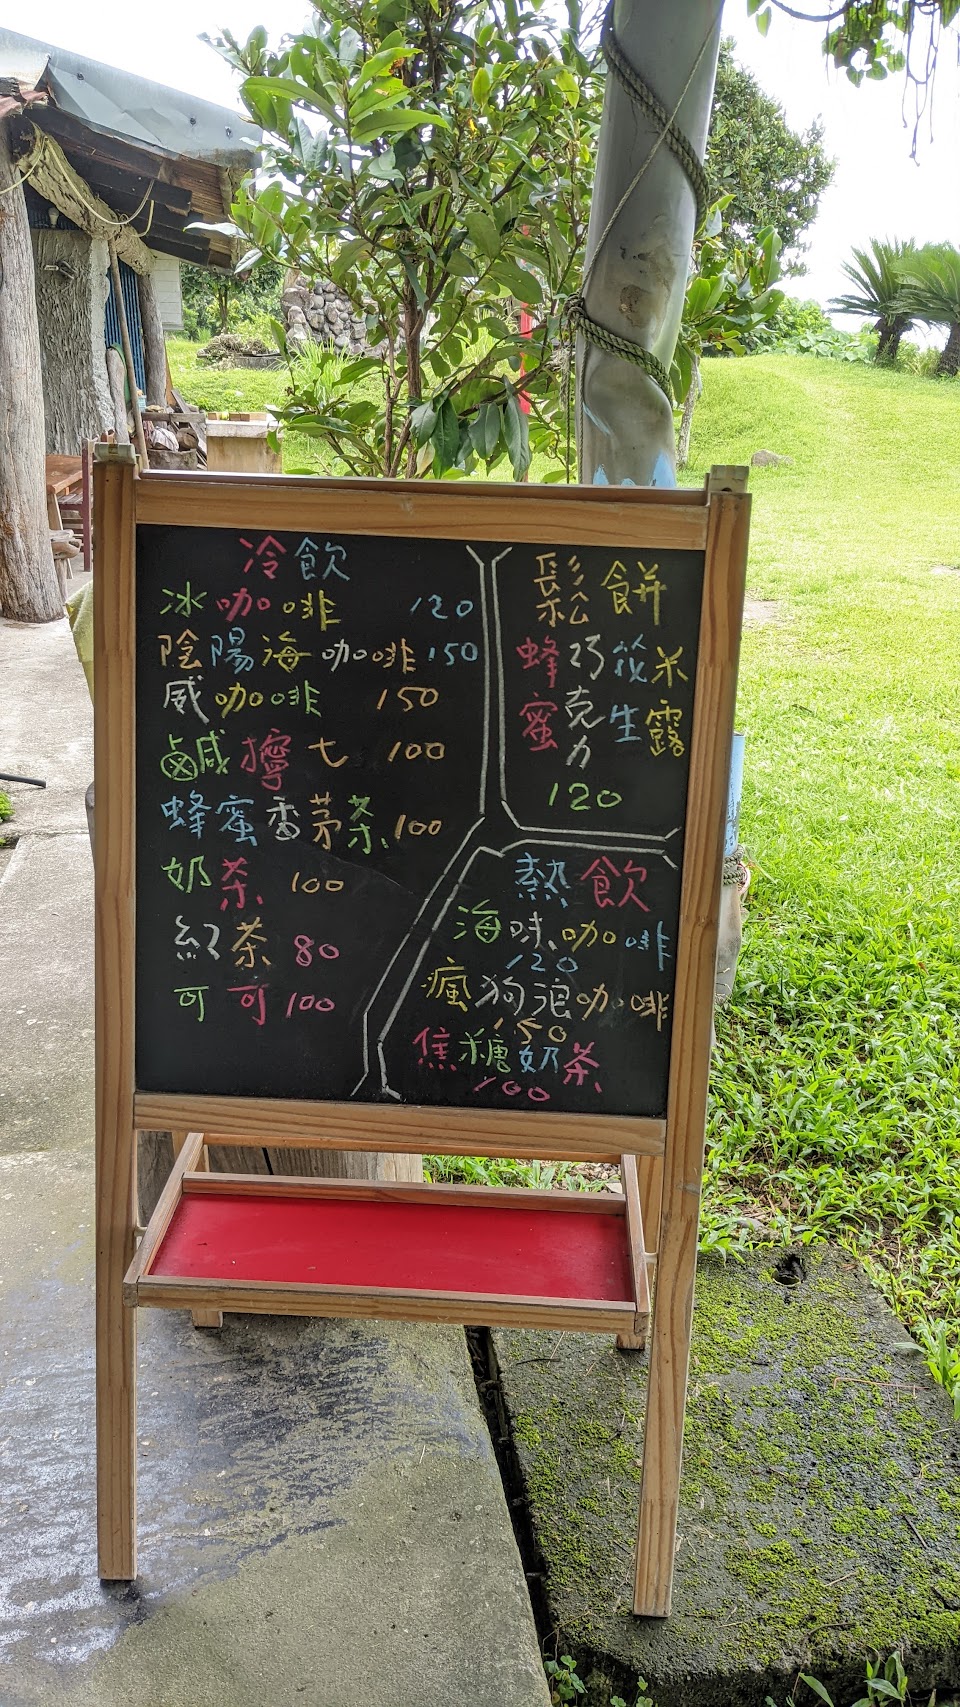 冷飲
冰咖啡 120
陰陽海咖啡 150
威咖啡 150
鹵咸檸七 100
蜂蜜香茅茶 100
奶茶 100
紅茶 80
可可 100
鬆餅
蜂蜜
巧克力
花生
米露
120
熱飲
海味咖啡
120
瘋狗浪咖啡
150
焦糖奶茶
100